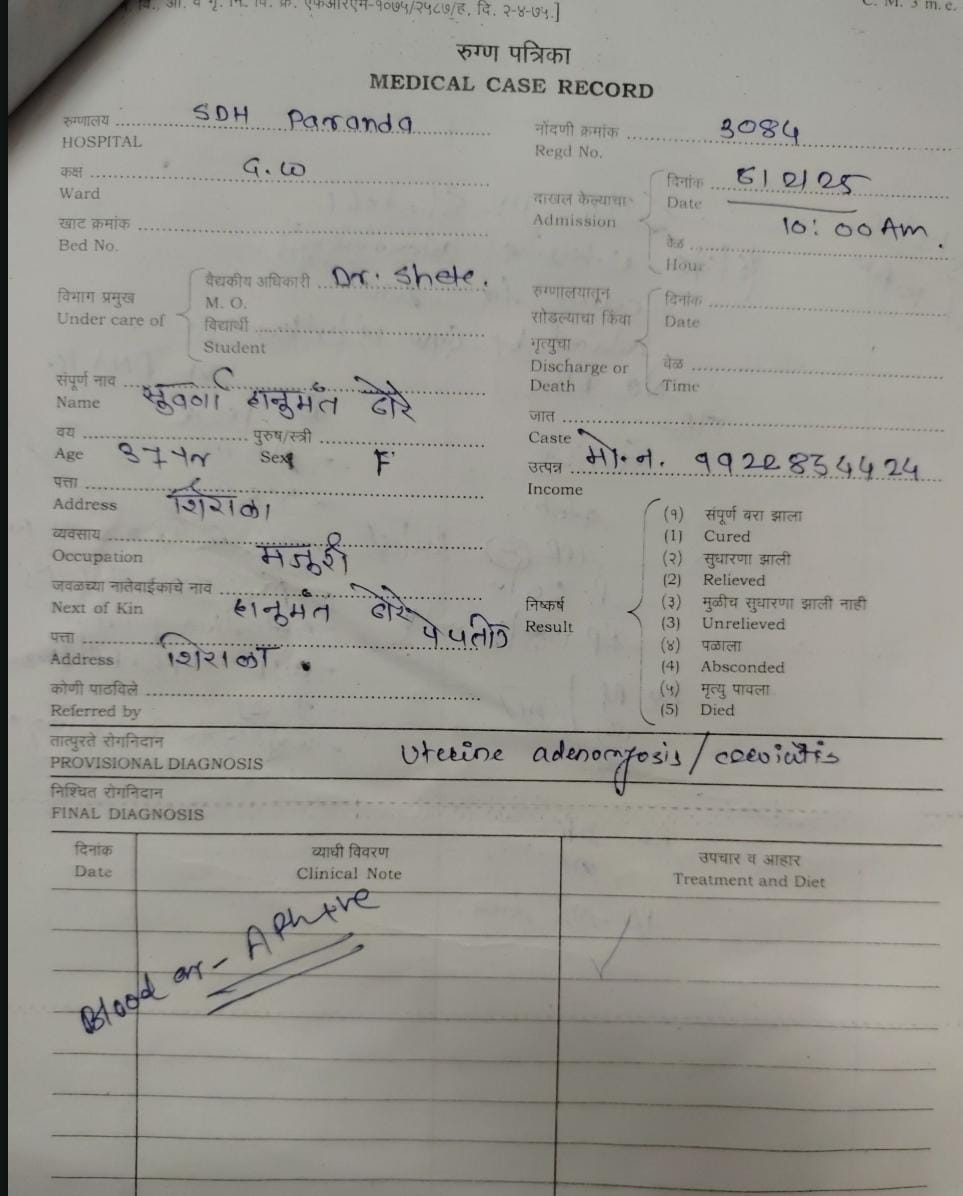 वि., आ. व गृ. नि. वि. क्र. एफआरएम-१०७५/२५८७/ह, दि. २-४-७५.]
C. M. 3 m. e.
रुग्ण पत्रिका
MEDICAL CASE RECORD
रुग्णालय SDH Paranda
HOSPITAL
नोंदणी क्रमांक 3084
Regd No.
कक्ष G.W
Ward
खाट क्रमांक
Bed No.
दाखल केल्याचा
Admission
दिनांक 5/2/25
Date
10:00 Am.
वेळ
Hour
विभाग प्रमुख
Under care of
वैद्यकीय अधिकारी Dr. Shete.
M. O.
विद्यार्थी
Student
रुग्णालयातून
सोडल्याचा किंवा
मृत्युचा
Discharge or
Death
दिनांक
Date
वेळ
Time
संपूर्ण नाव
Name सुवर्णा हनुमंत ढोरे
वय पुरुष/स्त्री
Age 37 yr Sex F
पत्ता
Address शिराळा
व्यवसाय
Occupation मजूरी
जवळच्या नातेवाईकाचे नाव
Next of Kin हानुमंत ढोरे
पत्ता
Address शिराळा
कोणी पाठविले
Referred by
जात
Caste
उत्पन्न मो. न.
Income
निष्कर्ष
Result
(१) संपूर्ण बरा झाला
(1) Cured
(२) सुधारणा झाली
(2) Relieved
(३) मुळीच सुधारणा झाली नाही
(3) Unrelieved
(४) पळाला
(4) Absconded
(५) मृत्यु पावला
(5) Died
तात्पुरते रोगनिदान
PROVISIONAL DIAGNOSIS Uterine adenomyosis / cervicitis
निश्चित रोगनिदान
FINAL DIAGNOSIS
दिनांक
Date
व्याधी विवरण
Clinical Note
उपचार व आहार
Treatment and Diet
Blood gr - A Rh +ve